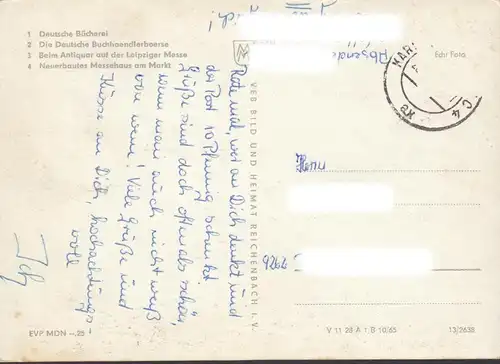 1 Deutsche Bücherei
2 Die Deutsche Buchhaendlerboerse
3 Beim Antiquar auf der Leipziger Messe
4 Neuerbautes Messehaus am Markt
Echt Foto
Absender
Rate mal, wer an Dich denkt und
der Post 10 Pfennig schenkt
Grüße sind doch oftmals schön,
wenn man auch nicht weiß
von wem! Viele Grüße und
Küsse an Dich, hochachtungs-
voll
Ich
VEB BILD UND HEIMAT REICHENBACH I. V.
Herrn
9262
EVP MDN –,25
V 11 28 A 1 B 10/65
13/2638